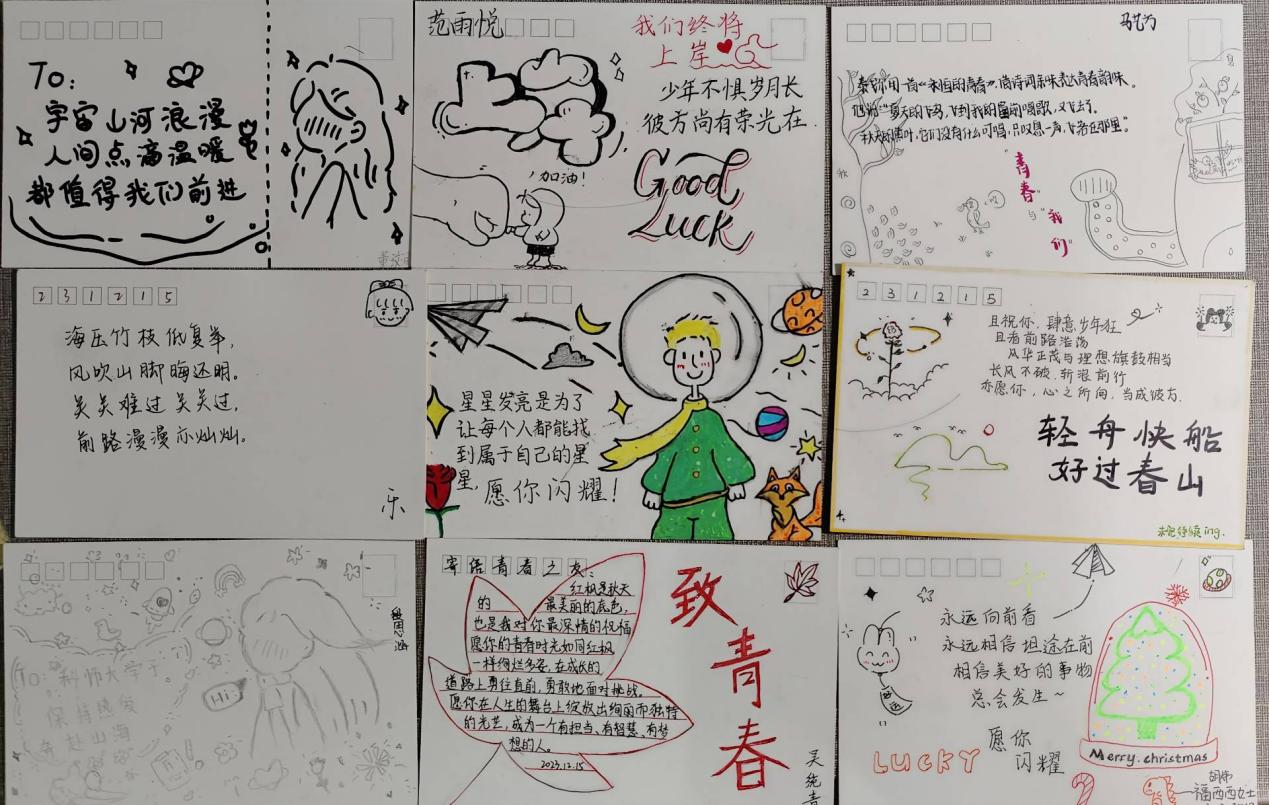 To:
宇宙山河浪漫
人间点滴温暖
都值得我们前进
范雨悦
我们终将
上岸
少年不惧岁月长
彼方尚有荣光在.
加油!
Good
Luck
秋天的
它们没有什么可唱,只叹息一声,飞落在那里。”
“青春”
与
“我们”
231215
海压竹枝低复举,
风吹山脚晦还明。
关关难过关关过,
前路漫漫亦灿灿。
乐
星星发亮是为了
让每个人都能找
到属于自己的星
星,愿你闪耀!
231215
且祝你,肆意少年狂
且看前路浩荡
风华正茂与理想旗鼓相当
长风不破.斩浪前行
亦愿你,心之所向,当成彼方.
轻舟快船
好过春山
未完待续ing.
To:科师大学子
保持热爱
奔赴山海
Hi
寄信青春之友:
红枫是秋天
的最美丽的底色,
也是我对你最深情的祝福
愿你的青春时光如同红枫
一样绚烂多姿,在成长的
道路上勇往直前,勇敢地面对挑战,
愿你在人生的舞台上绽放出绚丽而独特
的光芒,成为一个有担当、有智慧、有梦
想的人。
2023.12.15
致
青
春
永远向前看
永远相信坦途在前
相信美好的事物
总会发生~
愿你
闪耀
LUCKY
Merry.christmas
福西西女士